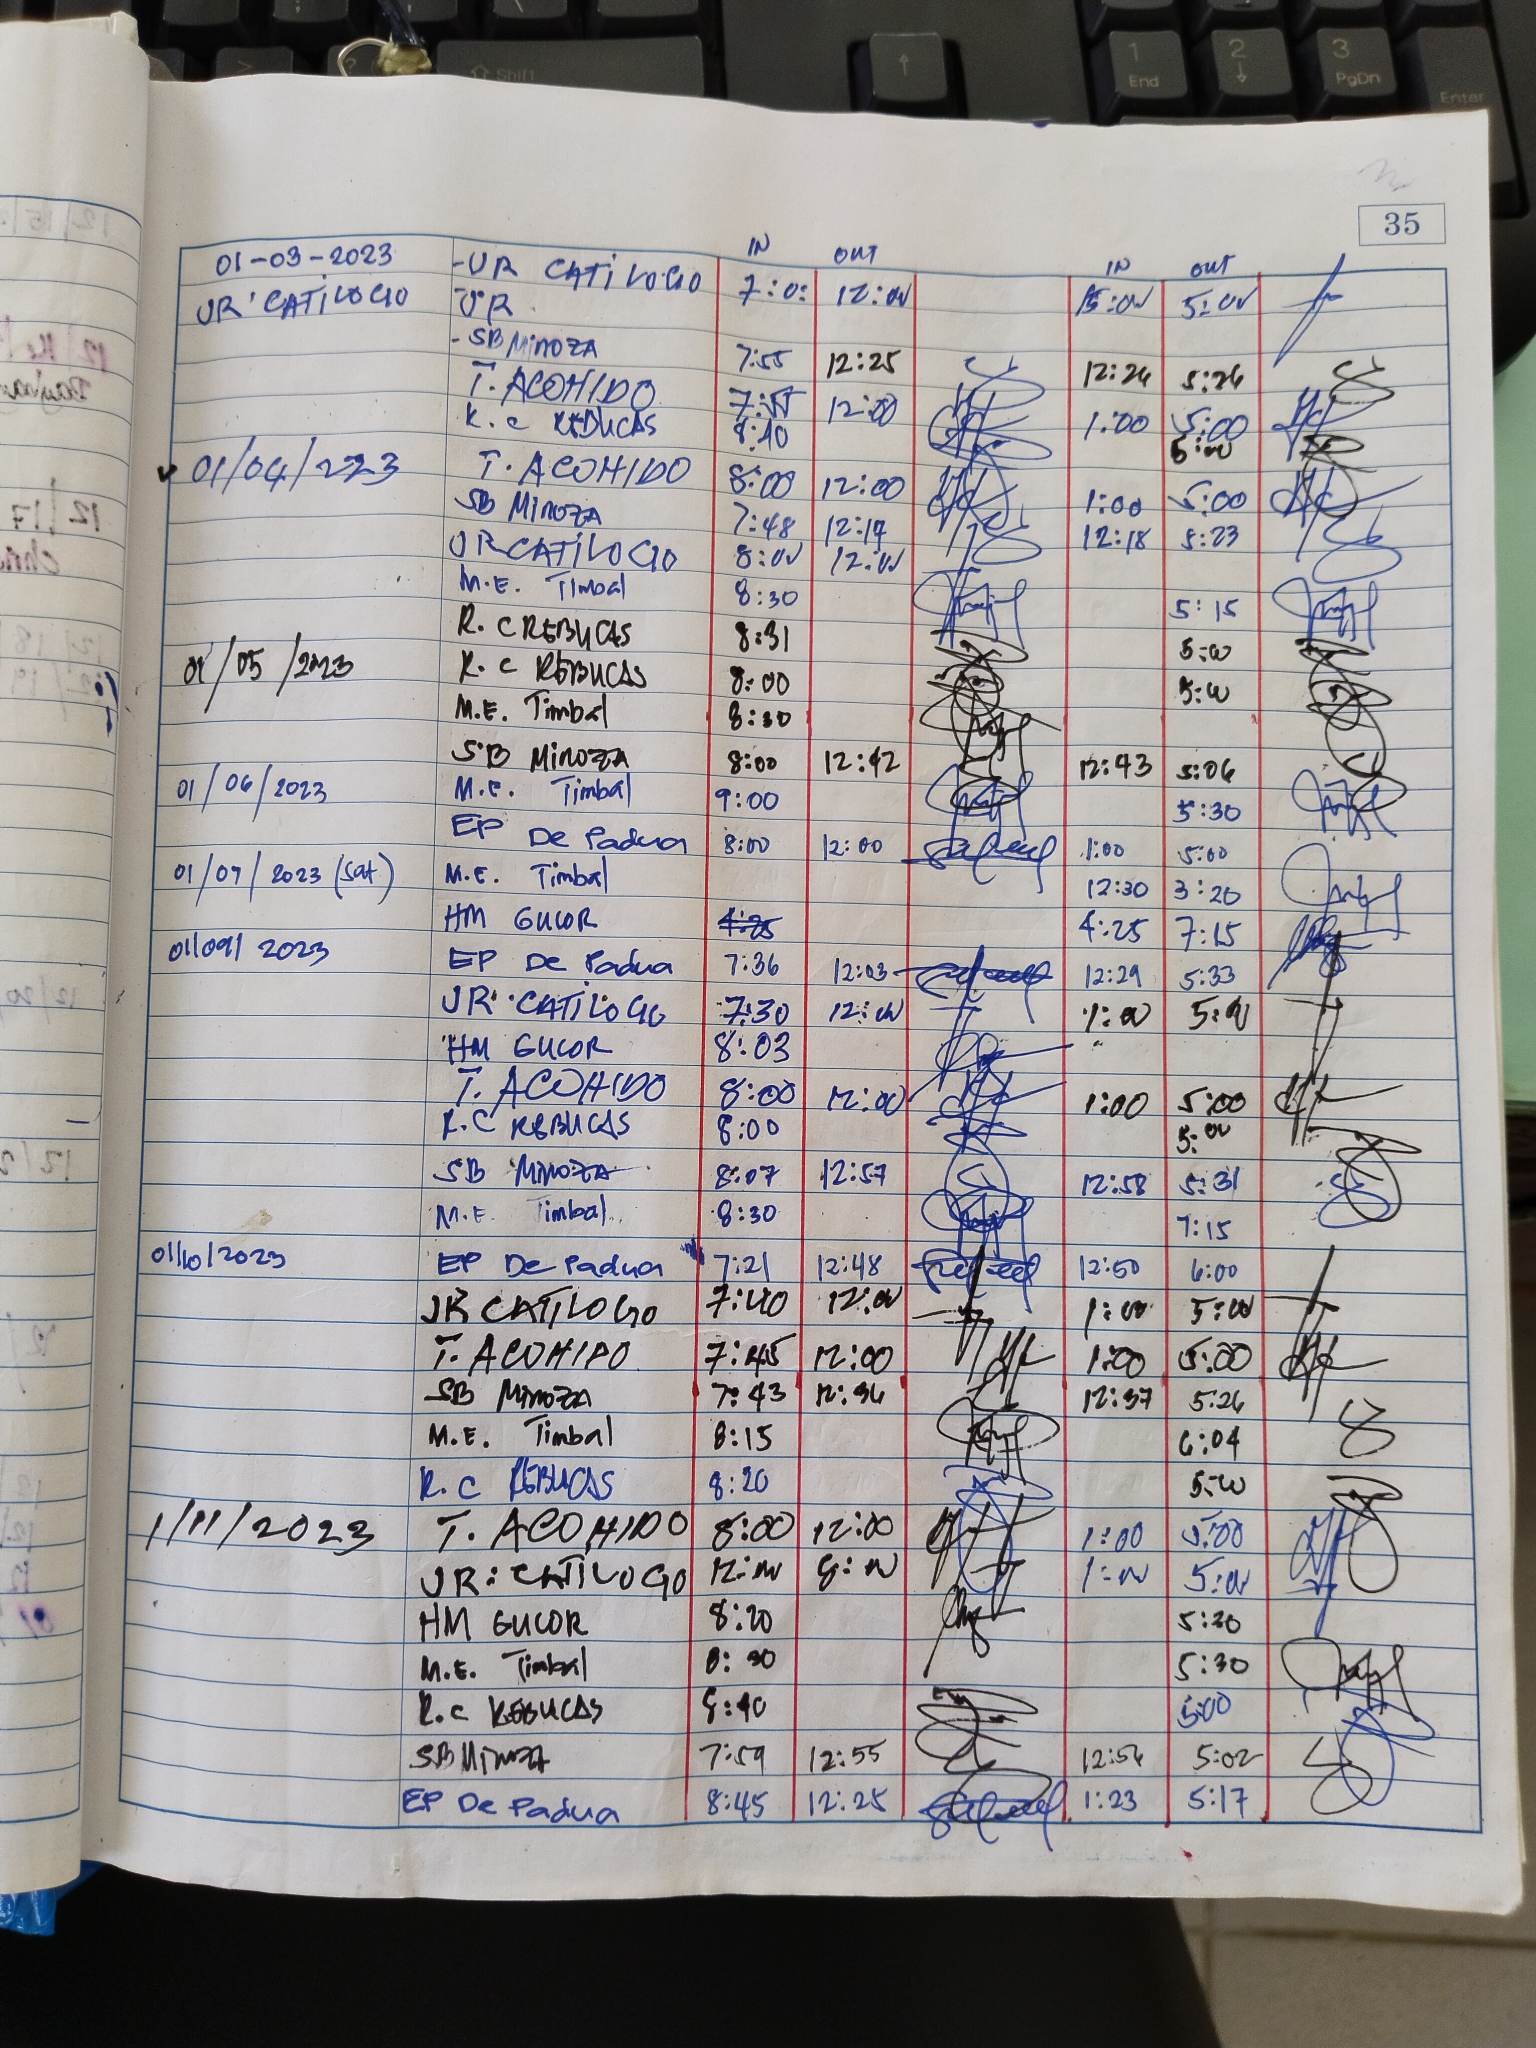 1 End
2
3 PgDn
Enter
Shift
35
IN OUT IN OUT
01-03-2023 -JR CATILOGO 7:0: 12:00 5:00
JR CATILOGO JR
-SB Minoza 7:55 12:25 12:26 5:26
T. ACOHIDO 7:55 12:00 1:00 5:00
R.C REBUCAS 8:40 5:00
01/04/223 T. ACOHIDO 8:00 12:00 1:00 5:00
SB Minoza 7:48 12:17 12:18 5:23
JR CATILOGO 8:00 12:00
M.E. Timbal 8:30 5:15
R.C REBUCAS 8:31 5:00
01/05/2023 R.C REBUCAS 8:00 5:00
M.E. Timbal 8:30
SB Minoza 8:00 12:42 12:43 5:06
01/06/2023 M.E. Timbal 9:00 5:30
EP De Padua 8:00 12:00 1:00 5:00
01/07/2023 (Sat) M.E. Timbal 12:30 3:20
HM GUCOR 4:25 4:25 7:15
01/09/2023 EP De Padua 7:36 12:03 12:29 5:33
JR CATILOGO 7:30 12:00 1:00 5:00
HM GUCOR 8:03
T. ACOHIDO 8:00 12:00 1:00 5:00
R.C REBUCAS 8:00 5:00
SB Minoza 8:07 12:57 12:58 5:31
M.E. Timbal 8:30 7:15
01/10/2023 EP De Padua 7:21 12:48 12:50 6:00
JR CATILOGO 7:40 12:00 1:00 5:00
T. ACOHIDO 7:45 12:00 1:00 5:00
SB Minoza 7:43 12:36 12:37 5:26
M.E. Timbal 8:15 6:04
R.C REBUCAS 8:20 5:00
1/11/2023 T. ACOHIDO 8:00 12:00 1:00 5:00
JR: CATILOGO 12:00 8:00 1:00 5:00
HM GUCOR 8:20 5:20
M.E. Timbal 8:30 5:30
R.C REBUCAS 8:40 5:00
SB Minoza 7:59 12:55 12:56 5:02
EP De Padua 8:45 12:25 1:23 5:17